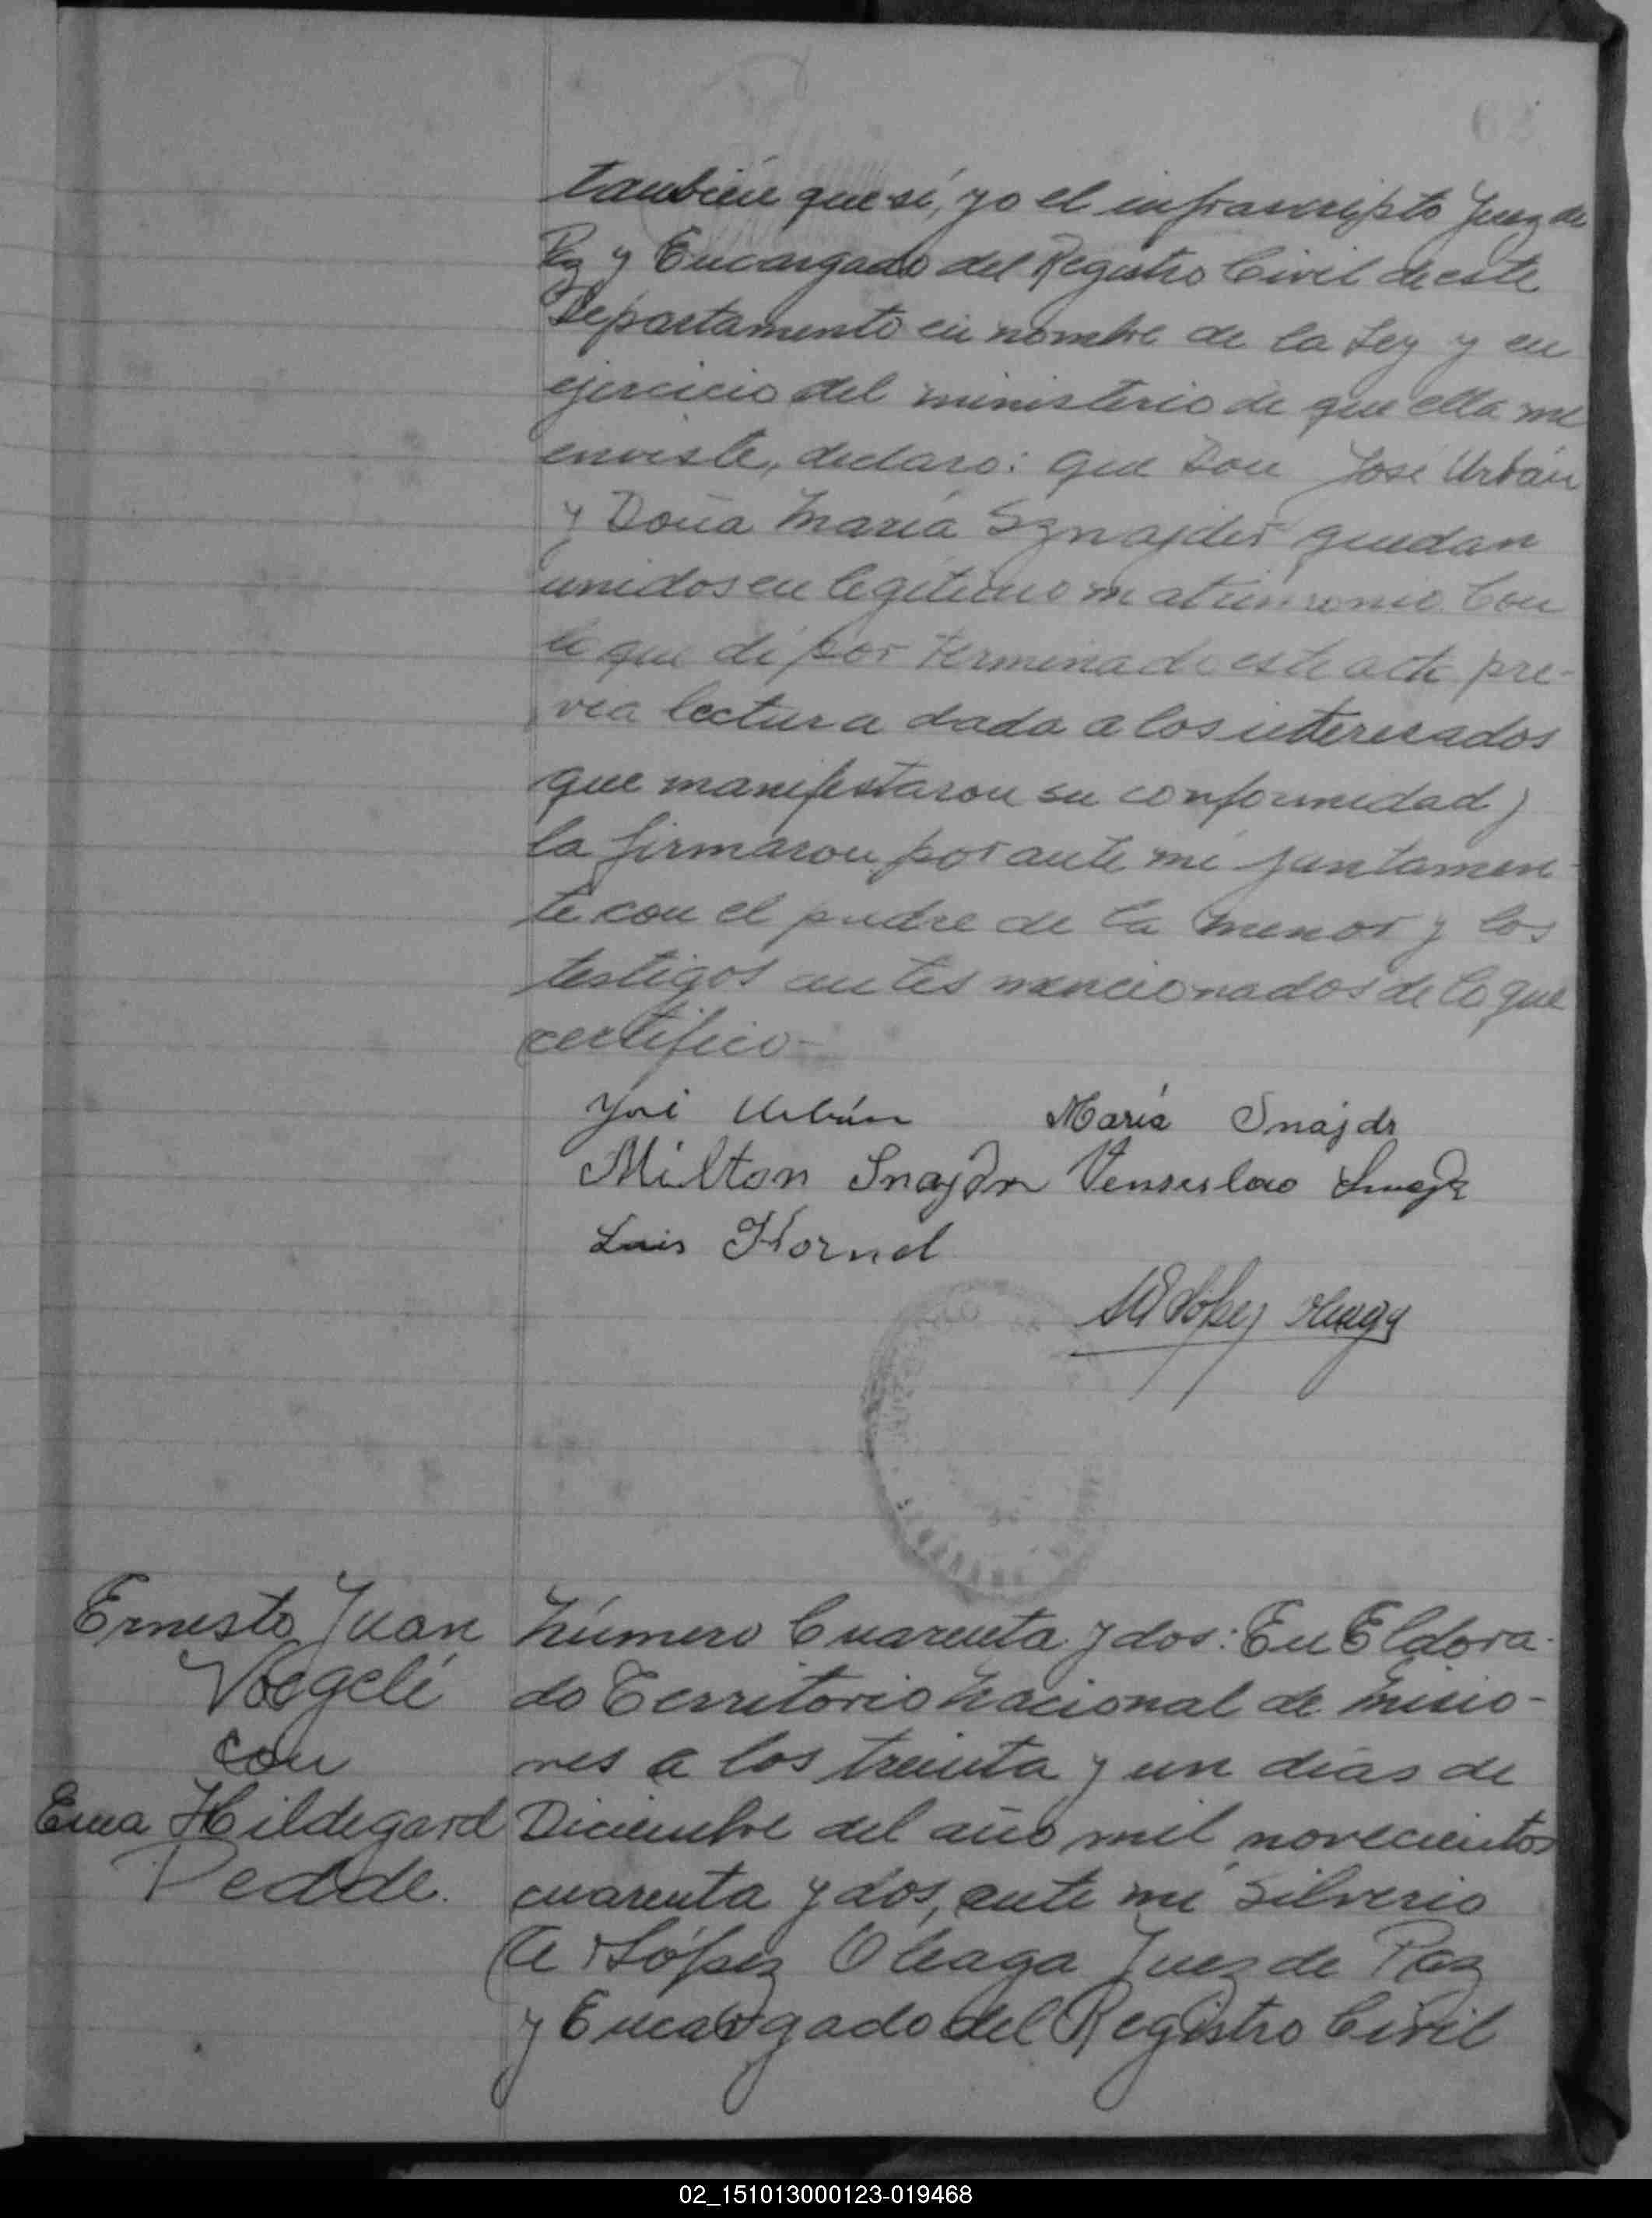 también que sí, yo el infrascripto Juez de
Paz y Encargado del Registro Civil de este
Departamento en nombre de la Ley y en
ejercicio del ministerio de que ella me
enviste, declaro: que Don José Urbán
y Doña María Sznajder quedan
unidos en legítimo matrimonio. Con
lo que dí por terminado este acta pre-
via lectura dada a los interesados
que manifestaron su conformidad y
la firmaron por ante mí juntamen-
te con el padre de la menor y los
testigos antes mencionados de lo que
certifico-
José Urbán María Snájdr
Milton Snajdr Venseslao
Luis Hornel
López
Ernesto Juan
Voegelí
con
Ema Hildegard
Pedde.
Número Cuarenta y dos: En Eldora-
do Territorio Nacional de Misio-
nes a los treinta y un días de
Diciembre del año mil novecientos
cuarenta y dos, ante mí Silverio
López Oleaga Juez de Paz
y Encargado del Registro Civil
02_151013000123-019468